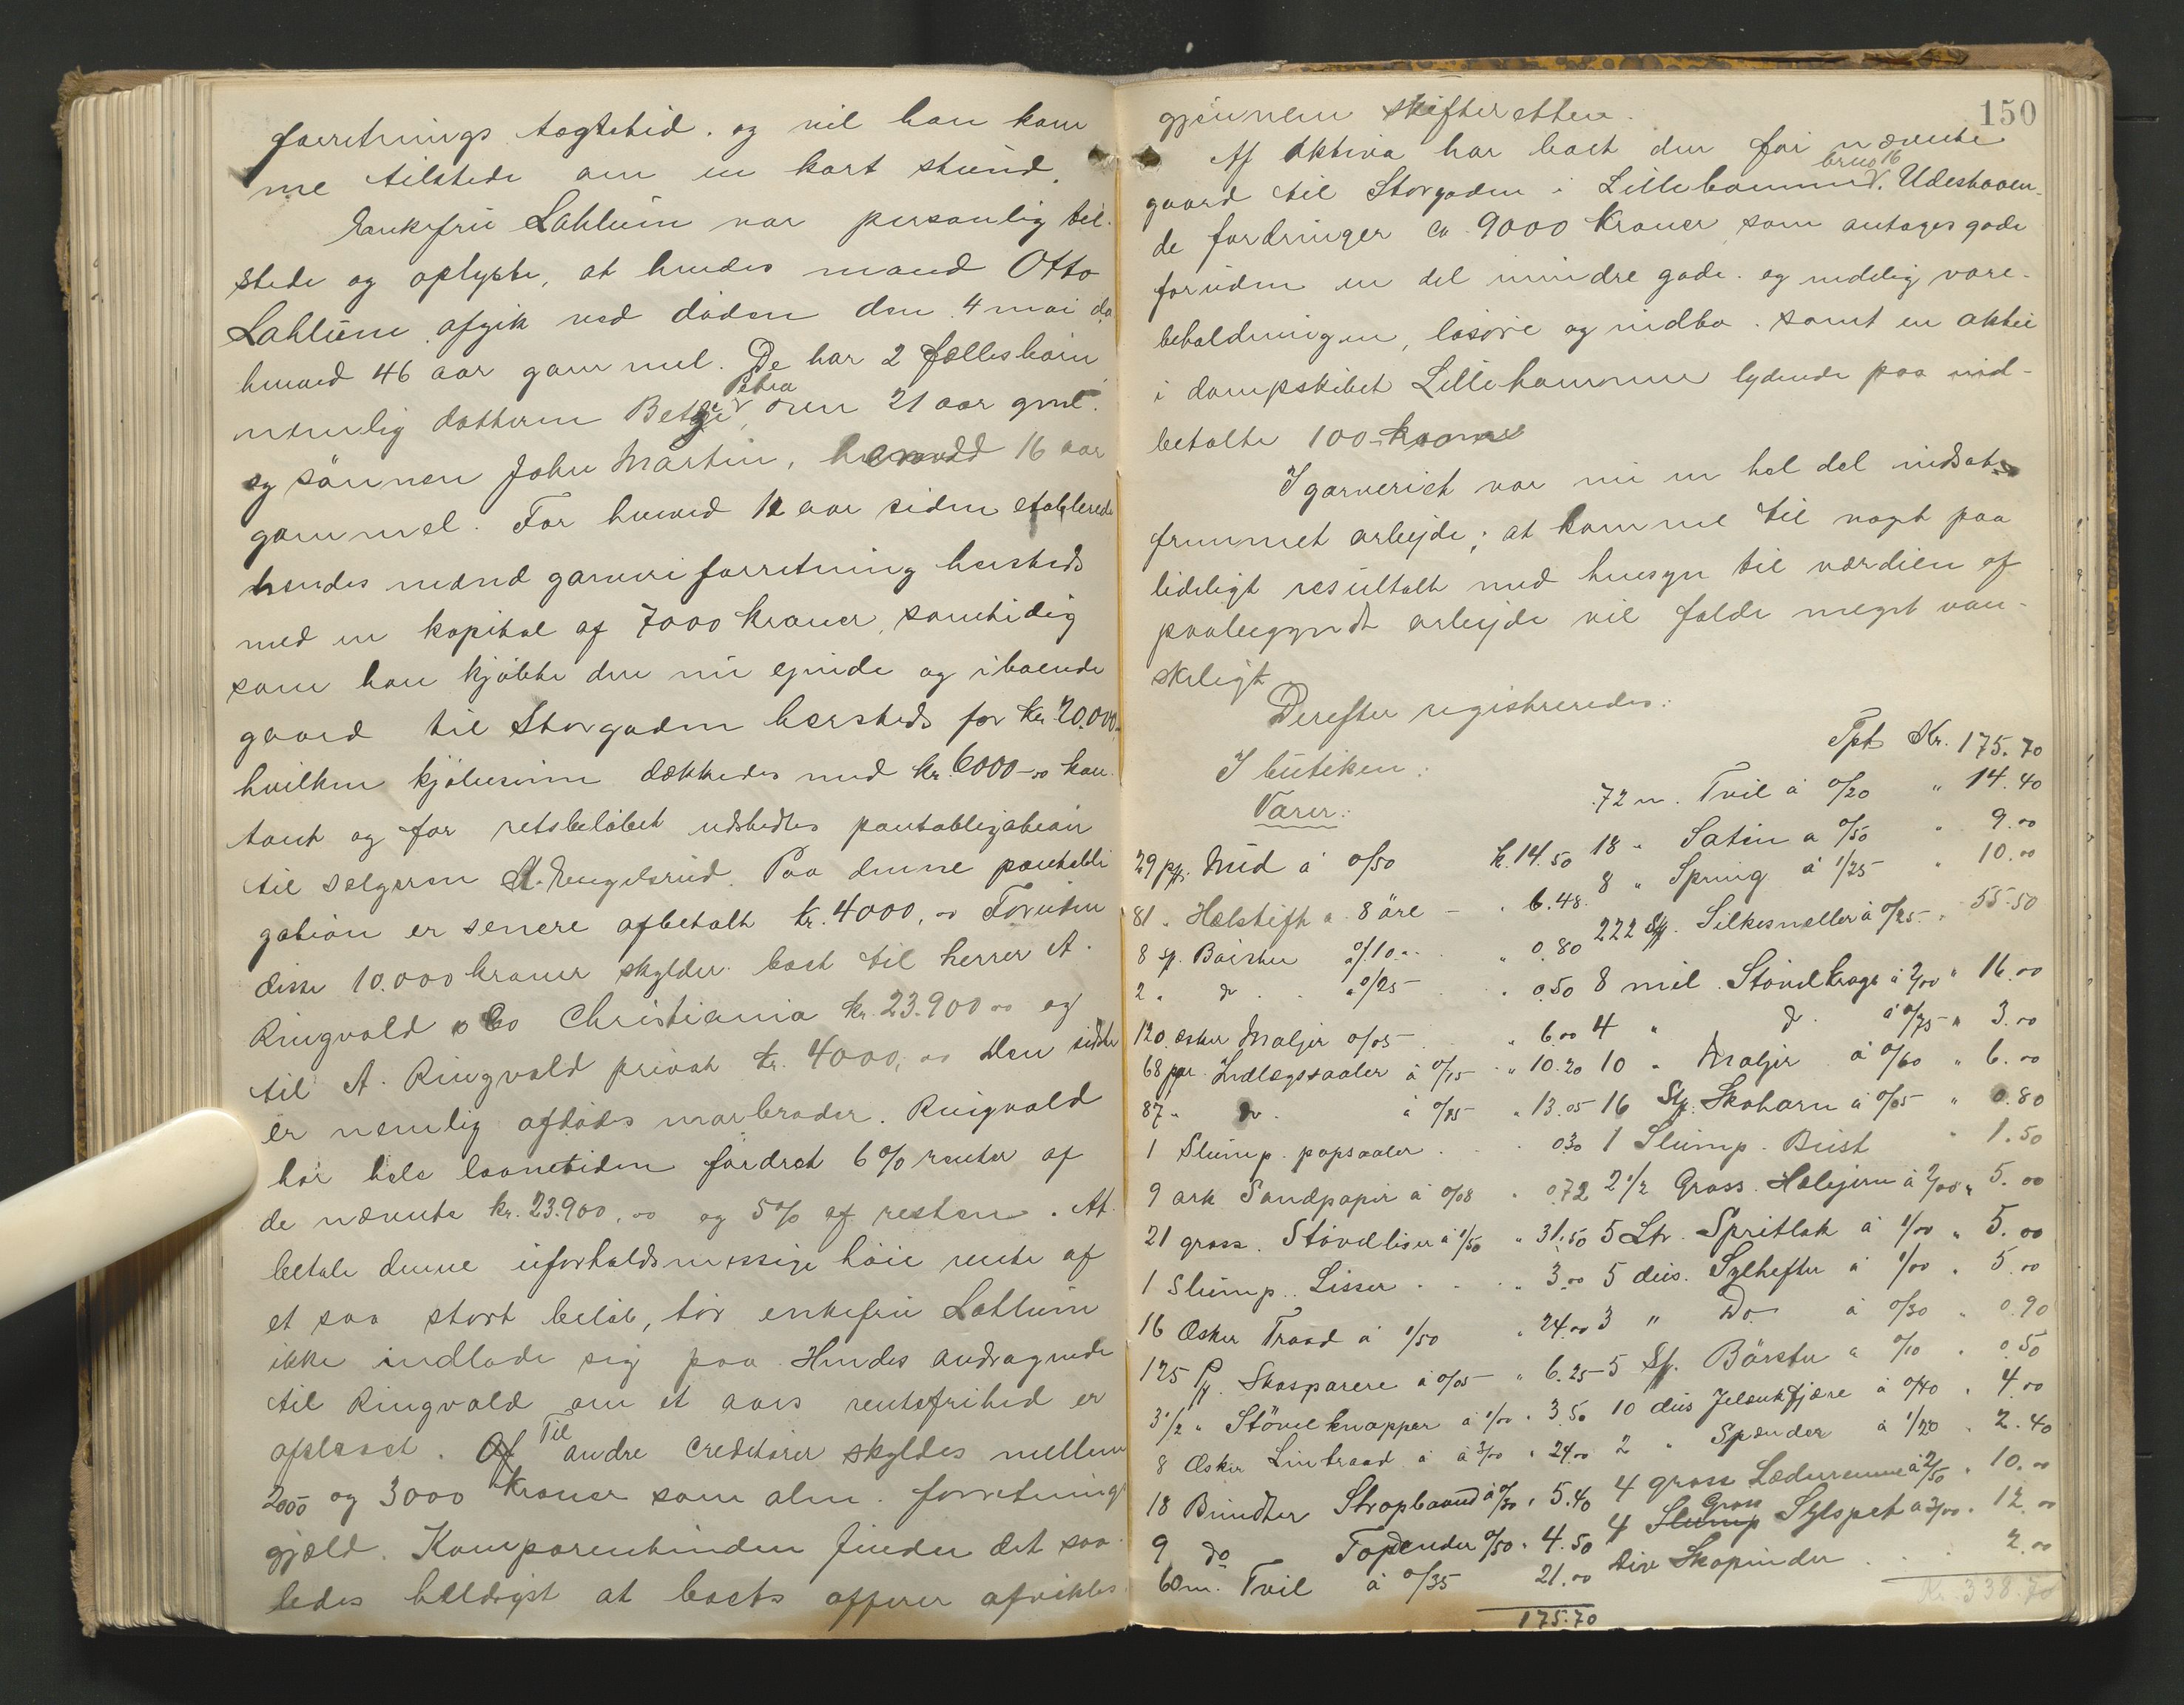 forretnings tagtstid. og vil han kom
me tilstede om en kort stund.
Enkefru Lahlum var personlig til-
stede og oplyste, at hendes mand Otto
Lahlum afgik ved døden den 4 mai da
henved 46 aar gammel. De har 2 fællesbørn
Petra
nemlig datteren Betzi, over 21 aar gml.
og sønnen John Martin, henved 16 aar
gammel. For henved 12 aar siden etablerede
hendes mand garveriforretning hersteds
med en kapital af 7000 kroner, samtidig
som han kjøbte den nu eiende og iboende
gaard til Storgaden hersteds for kr. 20.000.-
hvilken kjøbesum dækkedes med kr. 6000-00 kon-
tant og for restbeløbet udstedtes pantobligation
til sælgeren A. Engelsrud. Paa denne pantobli
gation er senere afbetalt kr. 4000,00 Foruden
disse 10.000 kroner skylder boet til herrer A.
Ringvold & Co Christiania kr. 23.900 00 og
til A. Ringvold privat kr. 4000,00 Den sidste
er nemlig afdødes morbroder. Ringvold
har hele laanetiden fordret 6% renter af
de nævnte kr. 23.900,00 og 5% af resten. At
betale denne uforholdsmessige høie rente af
et saa stort beløb, tør enkefru Lahlum
ikke indlade sig paa. Hendes andragende
til Ringvold om et aars rentefrihed er
Til
afslaaet. Af andre creditorer skyldes mellem
2000 og 3000 kroner som alm. forretnings
gjæld. Komparentinden finder det saa-
ledes heldigst at boets affærer afvikles
150
gjennem skifteretten.
Af Aktiva har boet den før nævnte
brno 16
gaard til Storgaden i Lillehammer. Udestaaen-
de fordringer ca 9000 kroner, som antages gode
foruden en del mindre gode. og endelig vare-
beholdningen, løsøre og indbo. samt en aktie
i dampskibet Lillehammer lydende paa ind-
betalte 100 kroner
I garveriet var nu en hel del indsat
fremmet arbejde; at komme til noget paa
lideligt resultat med hensyn til værdien af
paabegyndt arbejde vil falde meget van-
skeligt
Derefter registreredes:
I butiken:
Varer:
29 pk. Nud à 0/50 k. 14.50
81 " Hælstift a 8 øre - " 6.48
8 sp. Børster à 0/10 " 0.80
2 " do " 0/25 " 0.50
120 æsker Maljer 0/05 " 6.00
68 par Indlægssaaler à 0/15 " 10.20
87 " do à 0/15 " 13.05
1 Slump papsaaler 0.30
9 ark Sandpapir à 0/08 " 0.72
21 gross. Støvelliser à 1/50 " 31.50
1 Slump. Lisser " 3.00
16 Æsker Traad à 1/50 " 24.00
125 Pk. Skosparere à 0/05 " 6.25
3 1/2 " Støvelknapper à 1/00 " 3.50
8 Æsker Lintraad à 3/00 " 24.00
18 Bundter Stropbaand à 0/30 " 5.40
9 do Topender 0/50 " 4.50
60 m. Tvil à 0/35 21.00
175.70
Tpt Kr. 175.70
72 m. Tvil à 0/20 " 14.40
18 " Satin a 0/50 " 9.00
8 " Spring à 1/25 " 10.00
222 Stk. Silkesneller à 0/25 " 55.50
8 mil. Støvelkroge à 2/00 " 16.00
4 " do à 0/75 " 3.00
10 " Maljer à 0/60 " 6.00
16 Stk. Skohorn à 0/05 " 0.80
1 Slump. Bust " 1.50
2 1/2 Gross. Hælejern à 2/00 " 5.00
5 Ltr. Spritlak à 1/00 " 5.00
5 dus. Sylhefter à 1/00 " 5.00
3 " Do. à 0/30 " 0.90
5 St. Børster a 0/10 " 0.50
10 dus fjære à 0/40 " 4.00
2 " Spænder à 1/20 " 2.40
4 gross Læderremme à 2/50 " 10.00
Gross
4 Slump Sylspet a 3/00 " 12.00
Div Skopinder 2.00
Kr. 338.70